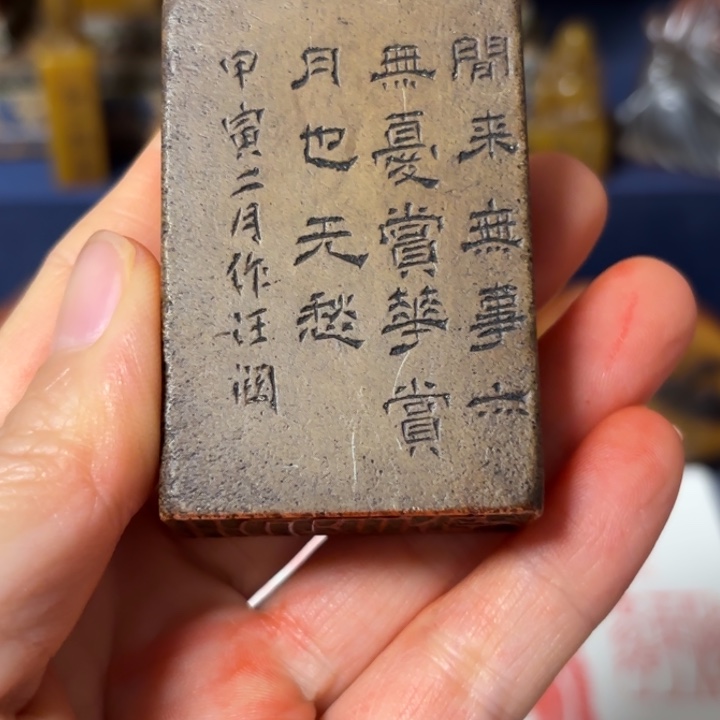 閒来無事亦
無憂賞華賞
月也无愁
甲寅二月作汪